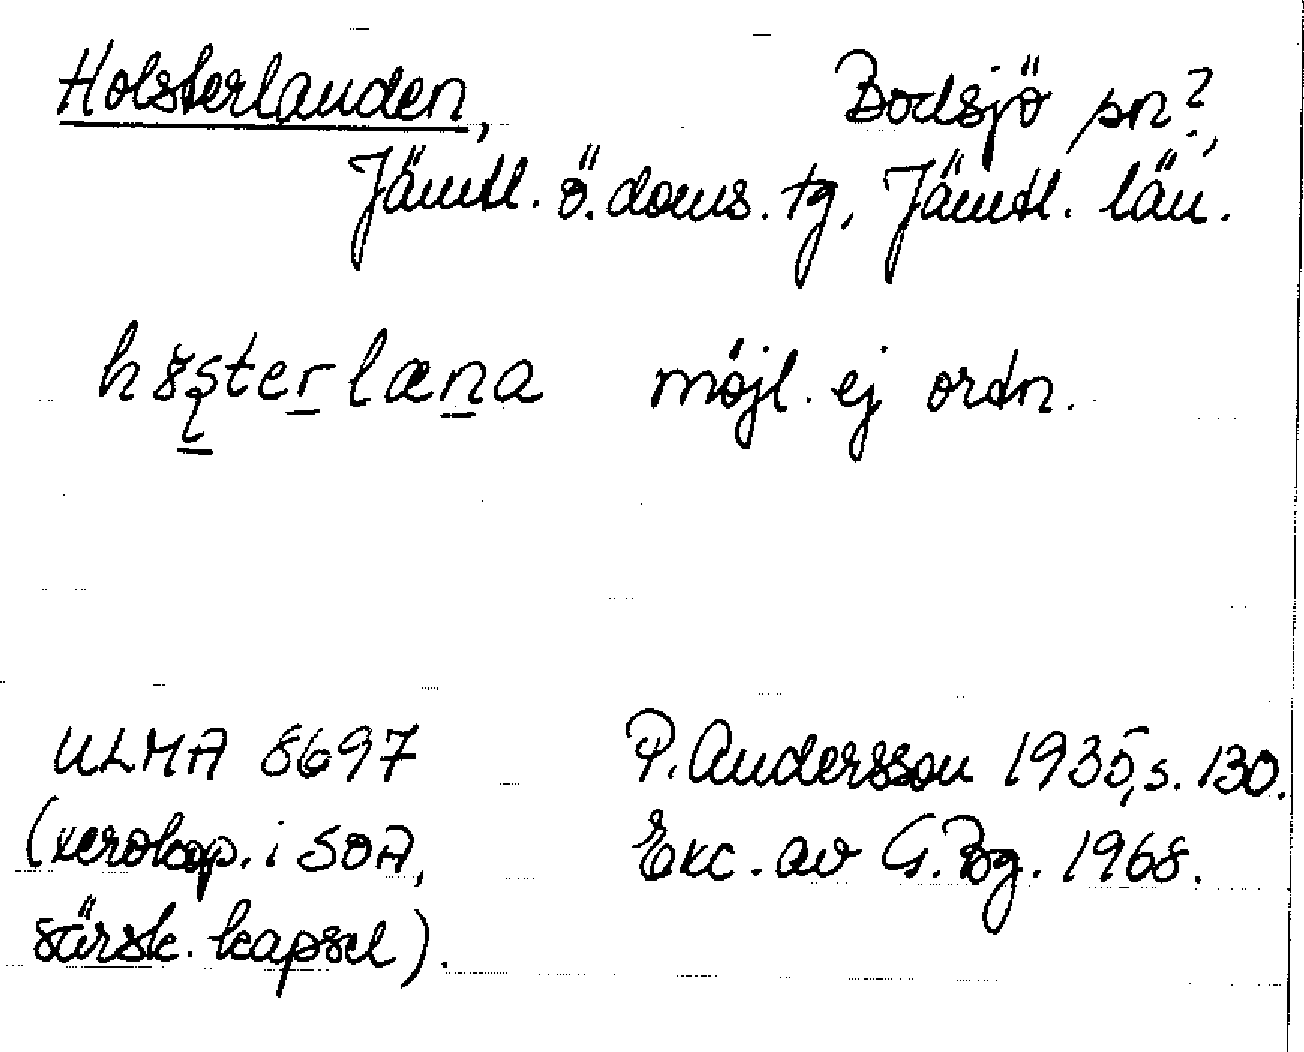 Holsterlanden, Bodsjö sn?,
Jämtl. ö. doms. tg, Jämtl. län.
möjl. ej ordn.
ULMA 8697 P. Andersson 1935, s. 130.
(xerokop. i SOA, Exc. av G. Bg. 1968.
särsk. kapsel).